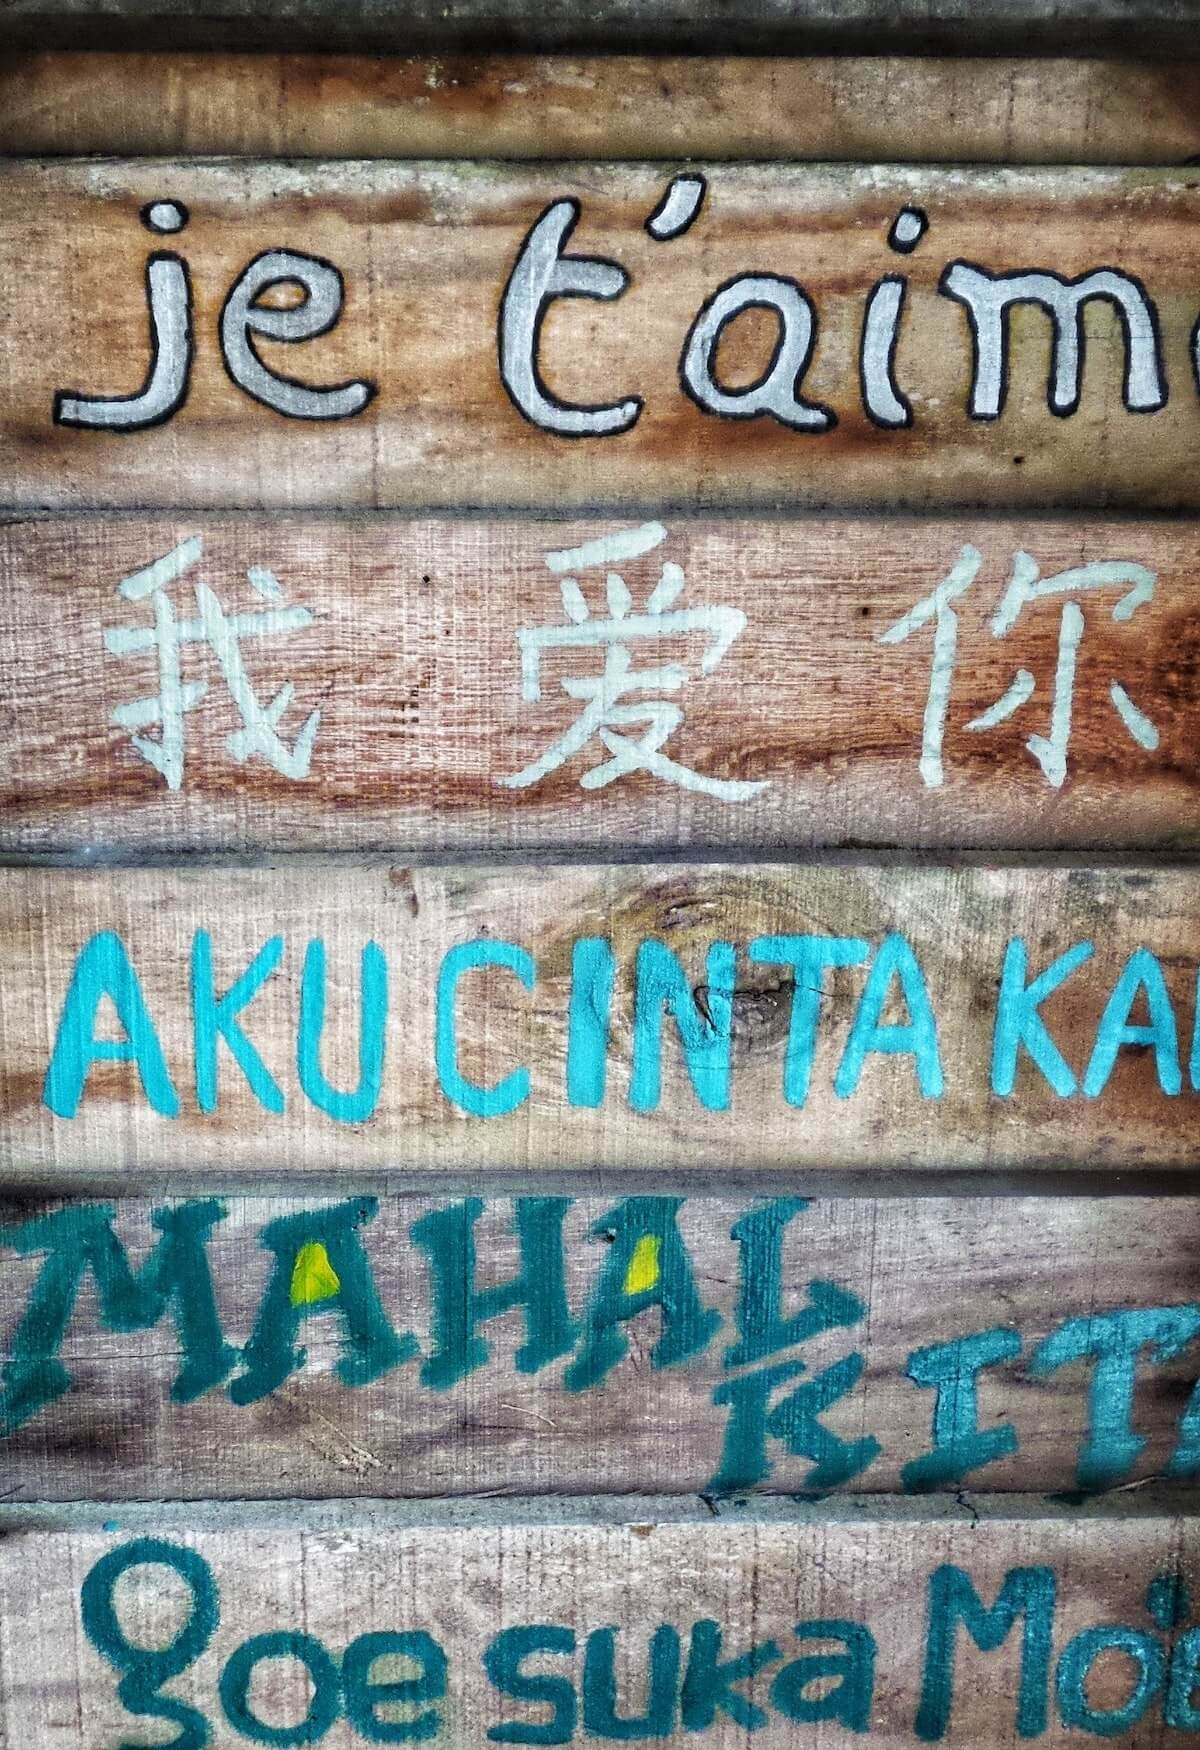 je t'aim
我 爱 你
AKU CINTA KA
MAHAL
KIT
goe suka Mo